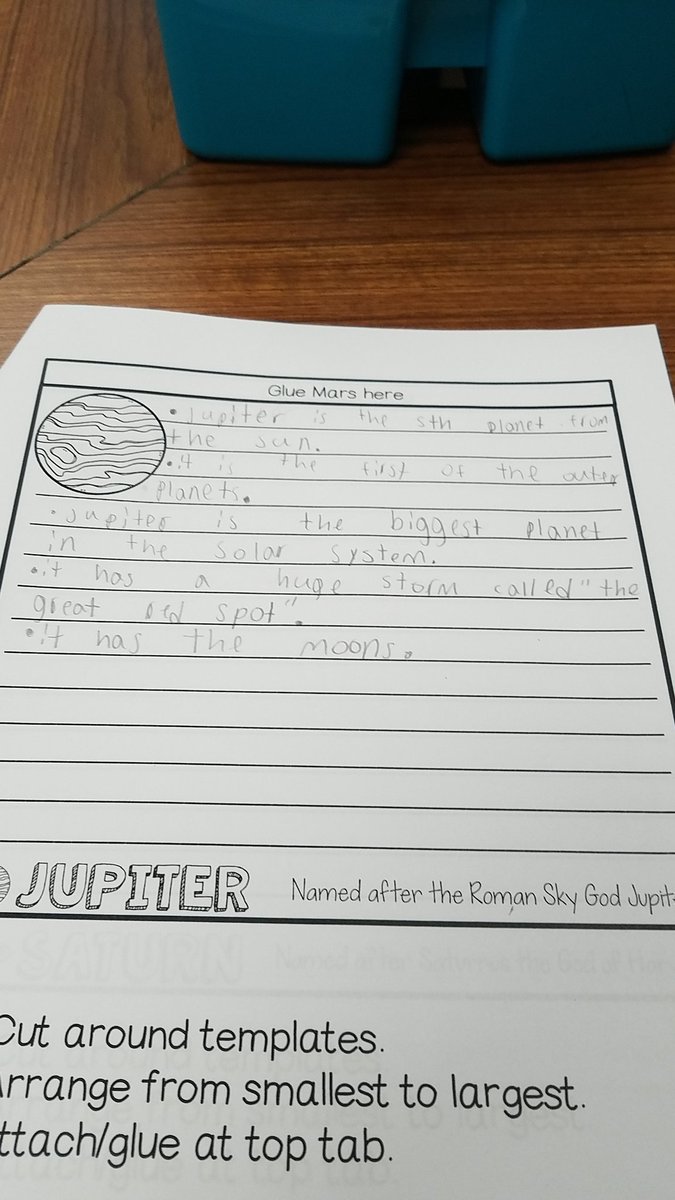 Glue Mars here
• Jupiter is the 5th planet from
the sun.
• it is the first of the outer
planets.
• Jupiter is the biggest planet
in the solar system.
• it has a huge storm called "the
great red spot".
• it has the moons.
JUPITER Named after the Roman Sky God Jupit
SATURN Named after the God of
Cut around templates.
Arrange from smallest to largest.
ttach/glue at top tab.